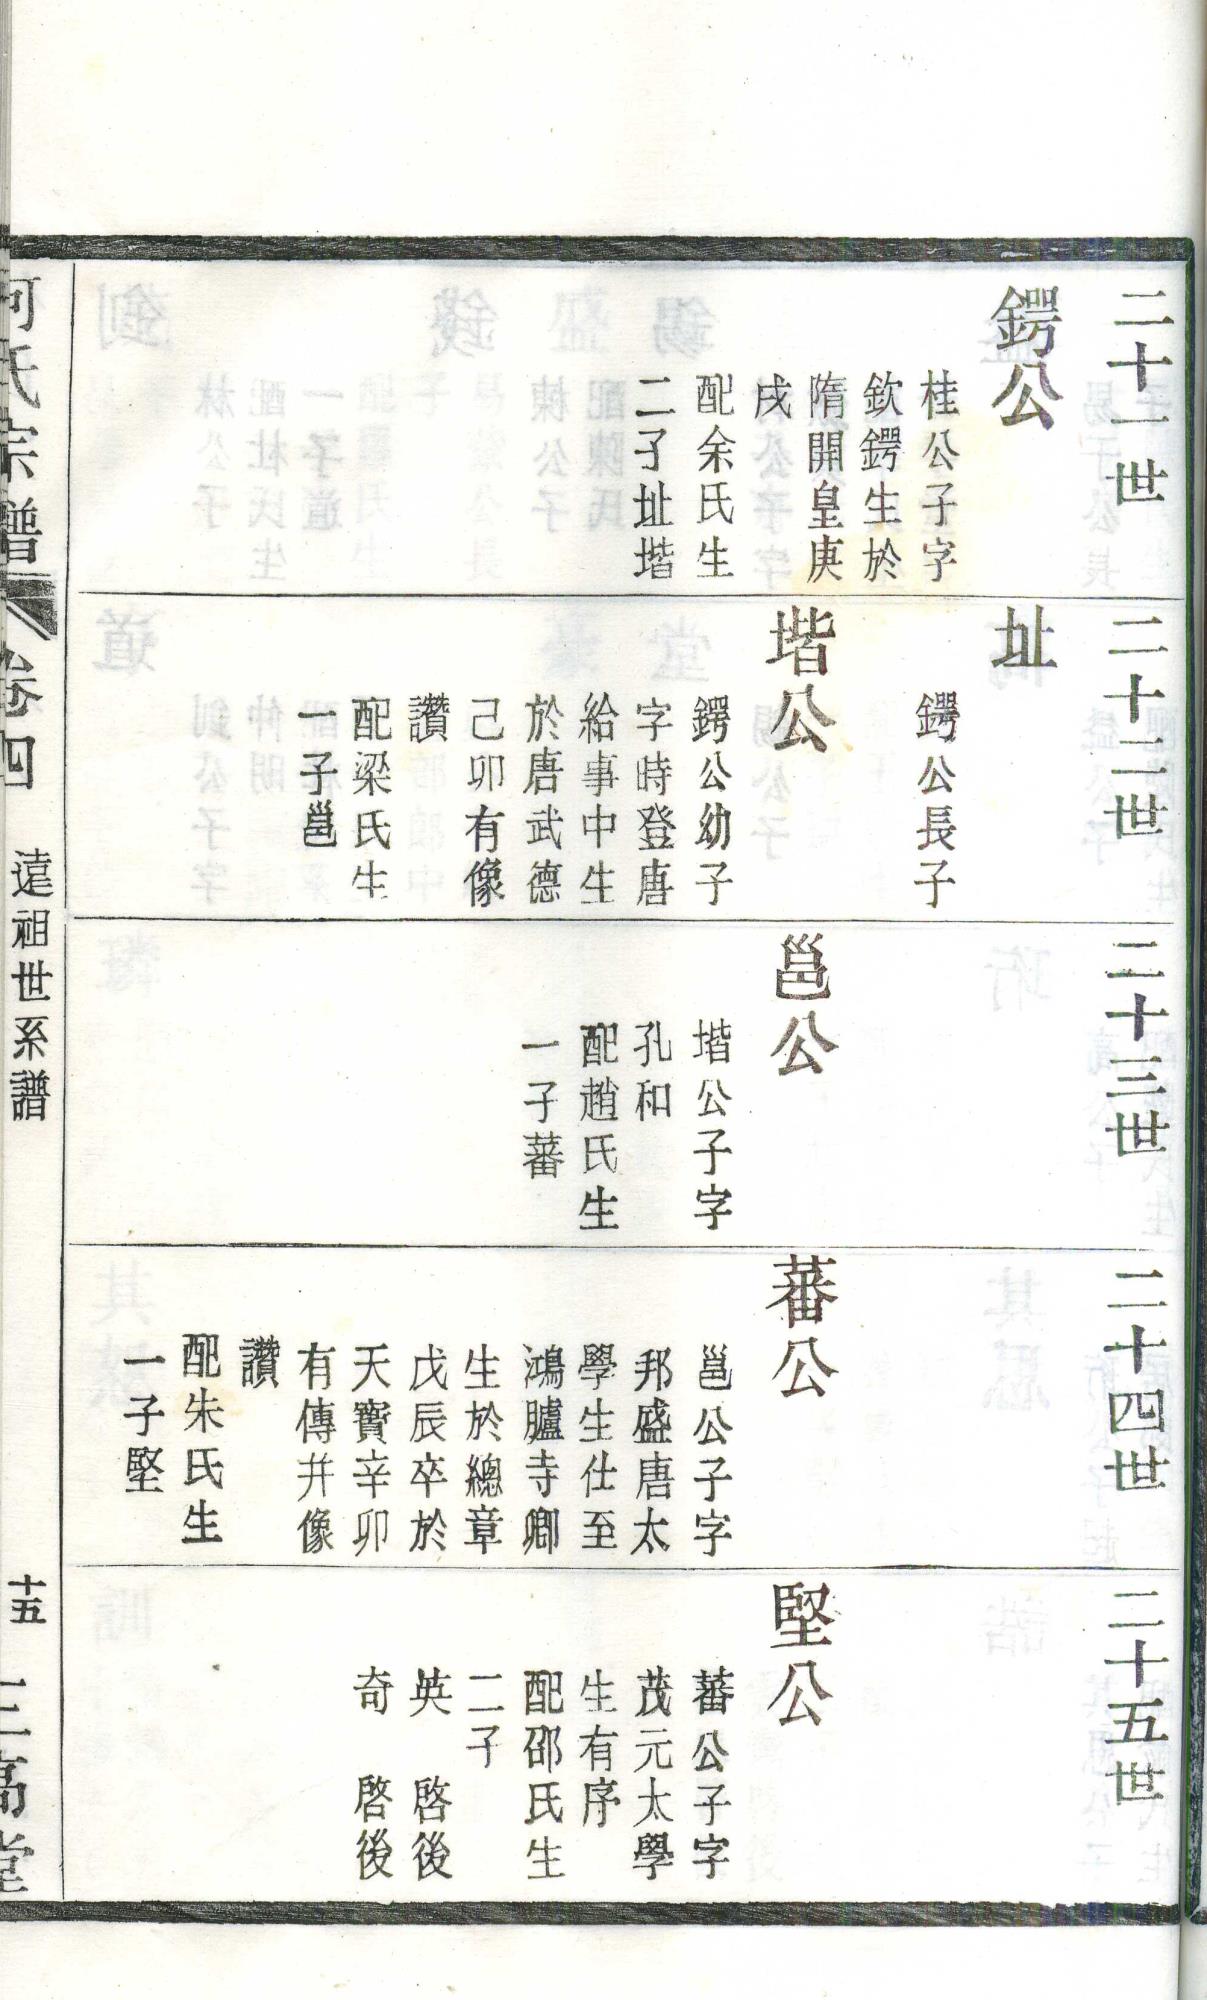 二十一世
鍔公
桂公子字
欽鍔生於
隋開皇庚
戌
配余氏生
二子址堦
二十二世
址
鍔公長子
堦公
鍔公幼子
字時登唐
給事中生
於唐武德
己卯有像
讚
配梁氏生
一子邕
二十三世
邕公
堦公子字
孔和
配趙氏生
一子蕃
二十四世
蕃公
邕公子字
邦盛唐太
學生仕至
鴻臚寺卿
生於總章
戊辰卒於
天寶辛卯
有傳并像
讚
配朱氏生
一子堅
二十五世
堅公
蕃公子字
茂元太學
生有序
配邵氏生
二子
英 啓後
奇 啓後
何氏宗譜
卷四
遠祖世系譜
十五
三高堂